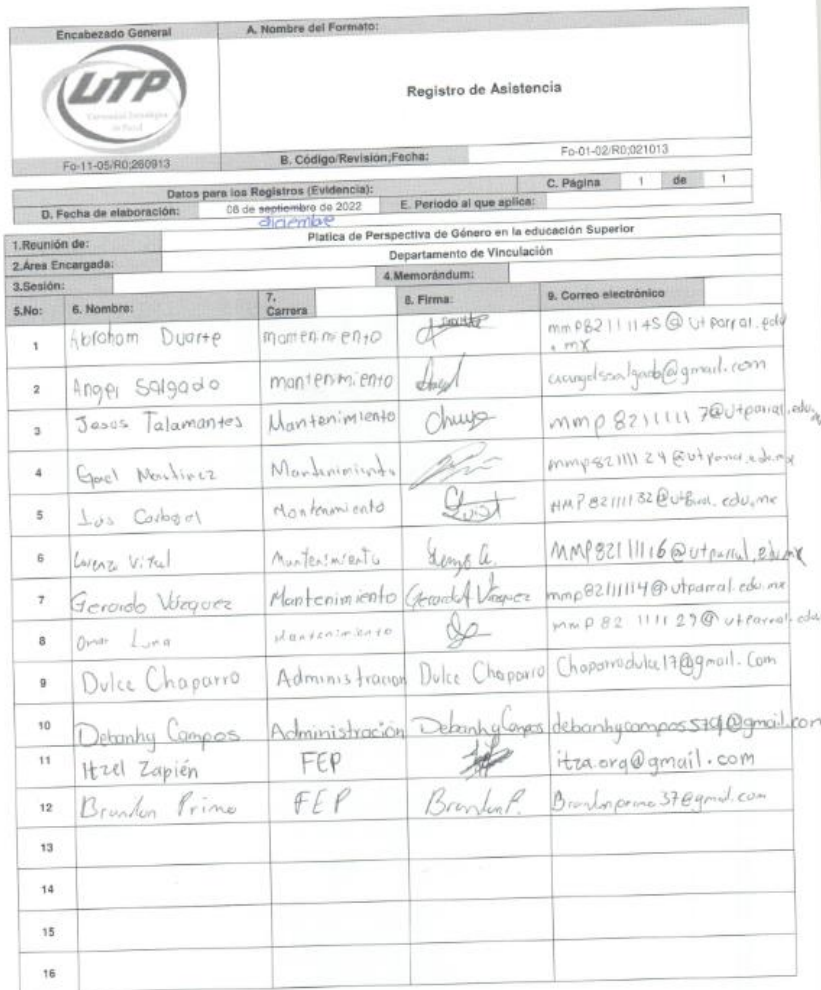 Encabezado General
A. Nombre del Formato:
UTP
Universidad Tecnológica
de Parral
Registro de Asistencia
Fo-11-05/R0;260913
B. Código/Revisión,Fecha:
Fo-01-02/R0;021013
Datos para los Registros (Evidencia):
C. Página 1 de 1
D. Fecha de elaboración: 08 de septiembre de 2022 E. Periodo al que aplica:
diciembre
1.Reunión de: Platica de Perspectiva de Género en la educación Superior
2.Área Encargada: Departamento de Vinculación
3.Sesión: 4.Memorándum:
5.No: 6. Nombre: 7. Carrera 8. Firma: 9. Correo electrónico
1 Abraham Duarte mantenimiento mmp8211145@utparral.edu
.mx
2 Angel Salgado mantenimiento
3 Jesus Talamantes Mantenimiento Chuyo mmp82111117@utparral.edu.
4 Gael Martinez Mantenimiento mmp82111124@utparral.edu.mx
5 Luis Carbajal Mantenimiento MMP82111132@utparral.edu.mx
6 Lorenzo Vital Mantenimiento MMP82111116@utparral.edu.mx
7 Gerardo Vázquez Mantenimiento Gerardo A Vázquez mmp82111114@utparral.edu.mx
8 Omar Luna Mantenimiento mmp82111129@utparral.edu
9 Dulce Chaparro Administracion Dulce Chaparro Chaparrodulce17@gmail.com
10 Debanhy Campos Administración Debanhy Campos
11 Itzel Zapién FEP itza.org@gmail.com
12 Brandon Primo FEP Brandon P. Brandonprimo37@gmail.com
13
14
15
16